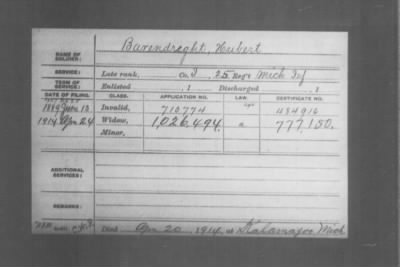 NAME OF SOLDIER: Barendreght, Hubert
SERVICE: Late rank, Co. I, 25 Reg't Mich Inf
TERM OF SERVICE: Enlisted , 1 Discharged , 1
DATE OF FILING. CLASS. APPLICATION NO. LAW. CERTIFICATE NO.
1889 13 Invalid, 710774 484916
1914 Apr 24 Widow, 1,026,494. 777,150.
Minor,
ADDITIONAL SERVICES:
REMARKS:
Died Apr 20, 1914, at Kalamazoo, Mich